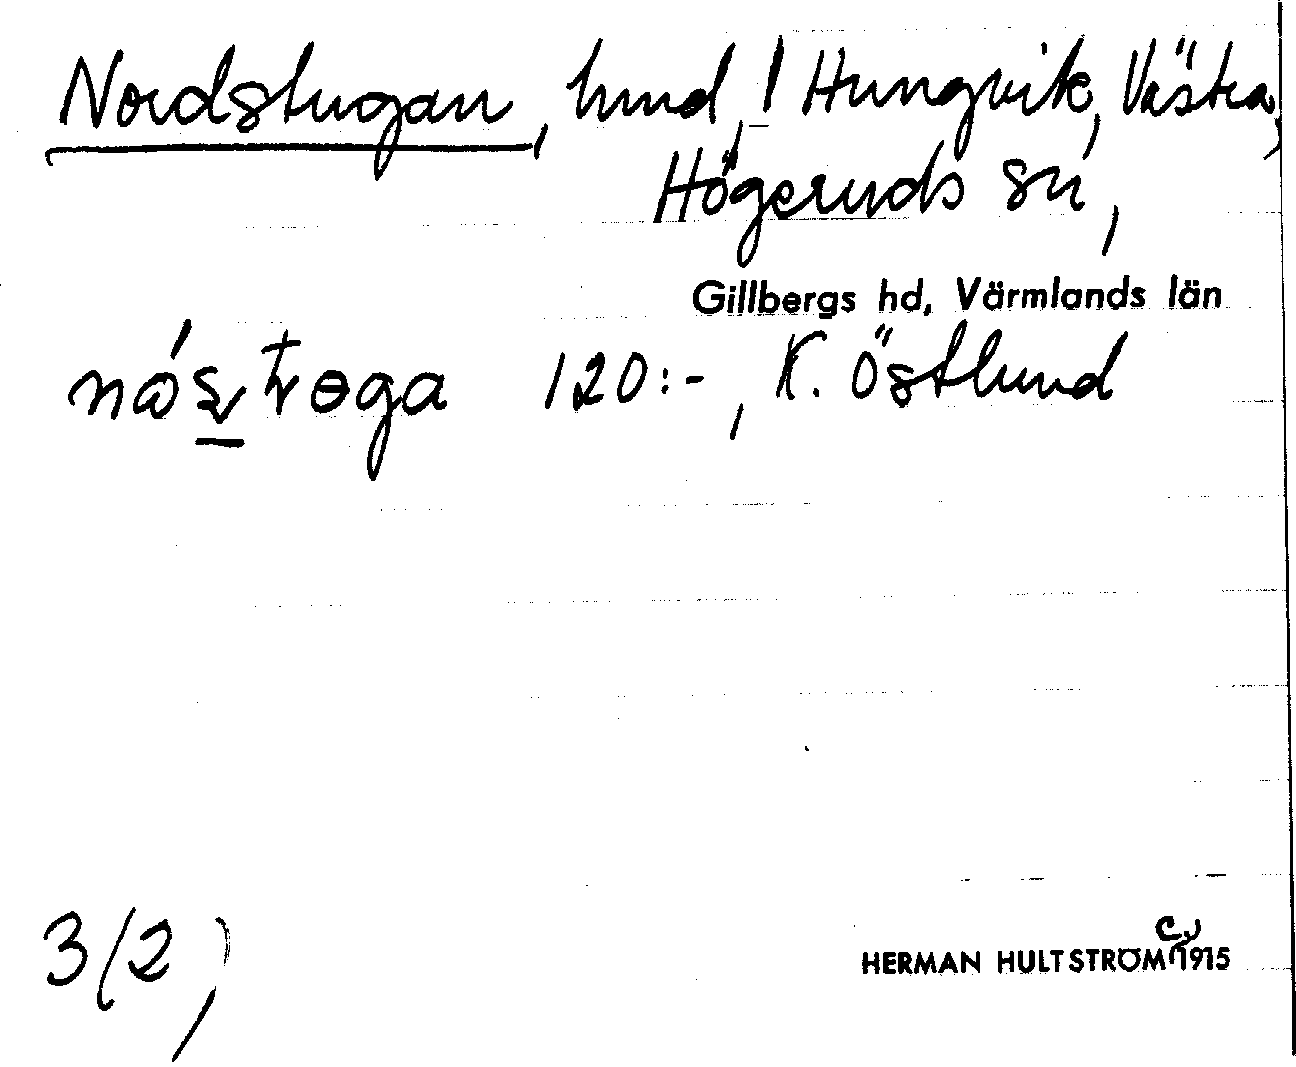 Nordstugan, hmd, ! Hungvik, Västra,
Högeruds sn,
Gillbergs hd, Värmlands län
120:-, K. Östlund
3(2)
HERMAN HULTSTRÖM 1915